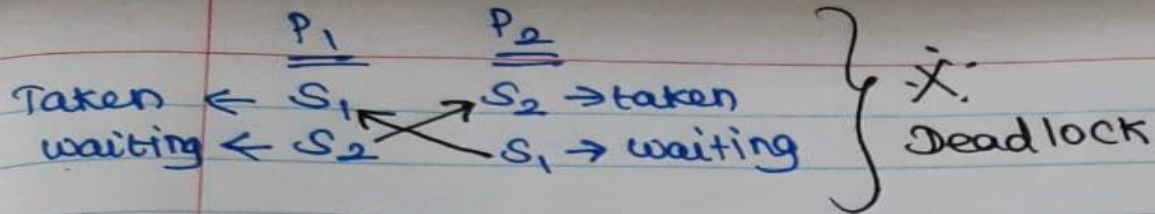 P1 P2
Taken ← S1 S2 → taken
waiting ← S2 S1 → waiting
X
Deadlock